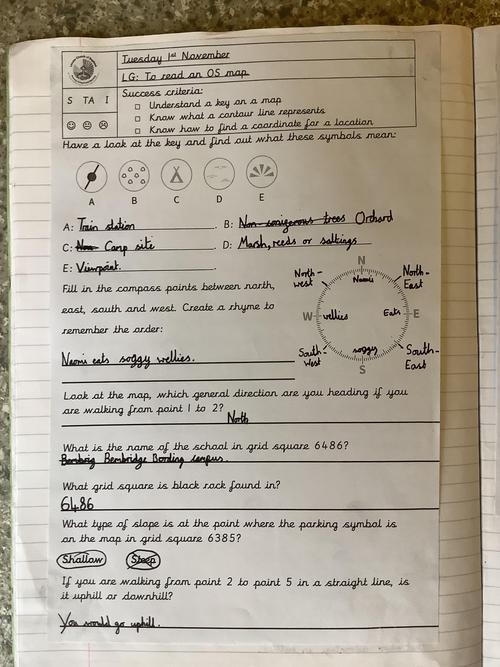 Tuesday 1st November
LG: To read an OS map
S TA I
Success criteria:
Understand a key on a map
Know what a contour line represents
Know how to find a coordinate for a location
Have a look at the key and find out what these symbols mean:
A B C D E
A: Train station. B: Non-conigerous trees Orchard
C: Camp site. D: Marsh, reeds or saltings
E: Viewpoint.
Fill in the compass points between north,
east, south and west. Create a rhyme to
remember the order:
Naomi eats soggy wellies.
N
North-west
North-East
Naomi
W wellies Eats E
South-West
soggy
South-East
S
Look at the map, which general direction are you heading if you
are walking from point 1 to 2?
North
What is the name of the school in grid square 6486?
Bembridge Bording campus.
What grid square is black rock found in?
6486
What type of slope is at the point where the parking symbol is
on the map in grid square 6385?
Shallow Steep
If you are walking from point 2 to point 5 in a straight line, is
it uphill or downhill?
You would go uphill.